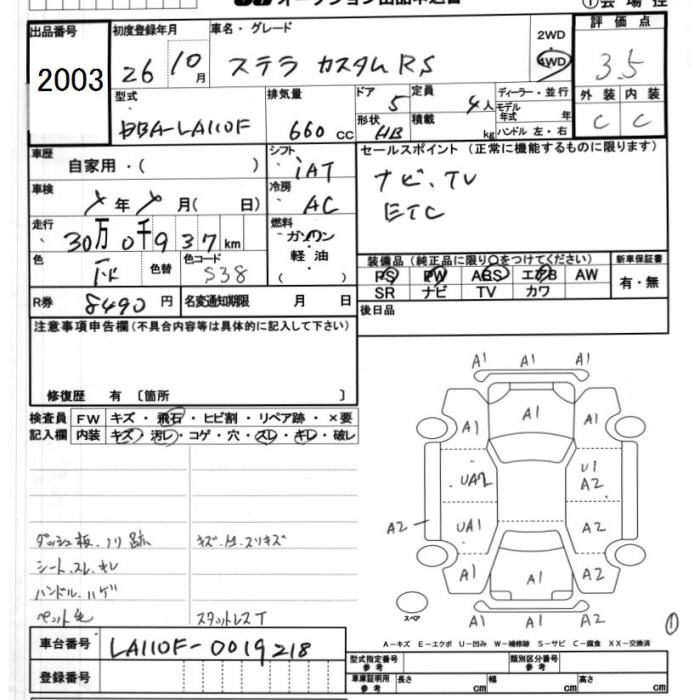 オークション出品申込書
①会場控
出品番号 初度登録年月 車名・グレード 2WD・4WD 評価点
2003 26 10月 ステラ カスタム RS 3.5
型式 排気量 ドア 定員 ディーラー・並行 外装 内装
DBA-LA110F 660cc 5 4人 モデル年式 年 C C
形状 HB 積載 kg ハンドル 左・右
車歴 シフト セールスポイント(正常に機能するものに限ります)
自家用・( ) iAT ナビ、TV
車検 冷房 ETC
年 月( 日) AC
走行 燃料
30万0千937km ガソリン・軽油・( )
色 色替 色コード 装備品(純正品に限り○をつけてください) 新車保証書
S38 PS PW ABS エアB AW 有・無
SR ナビ TV カワ
R券 8490円 名変通知期限 月 日 後日品
注意事項申告欄(不具合内容等は具体的に記入して下さい)
修復歴 有 〔箇所 〕
検査員記入欄 FW キズ・飛石・ヒビ割・リペア跡・×要
内装 キズ・汚レ・コゲ・穴・スレ・キレ・破レ
A1 A1 A1
A1 A1 A1
UA2 U1 A2
A2 UA1 A2
A1 A1 A2
A1 A1 A2
スペア
ダッシュ板、ノリ跡 キズ、M、スリキズ
シート、スレ、キレ
ハンドル、ハゲ
ペット毛 スタットレスT
①
A－キズ E－エクボ U－凹み W－補修跡 S－サビ C－腐食 XX－交換済
車台番号 LA110F-0019218
型式指定番号 参考 類別区分番号 参考
登録番号 車庫証明用 参考 長さ cm 幅 cm 高さ cm